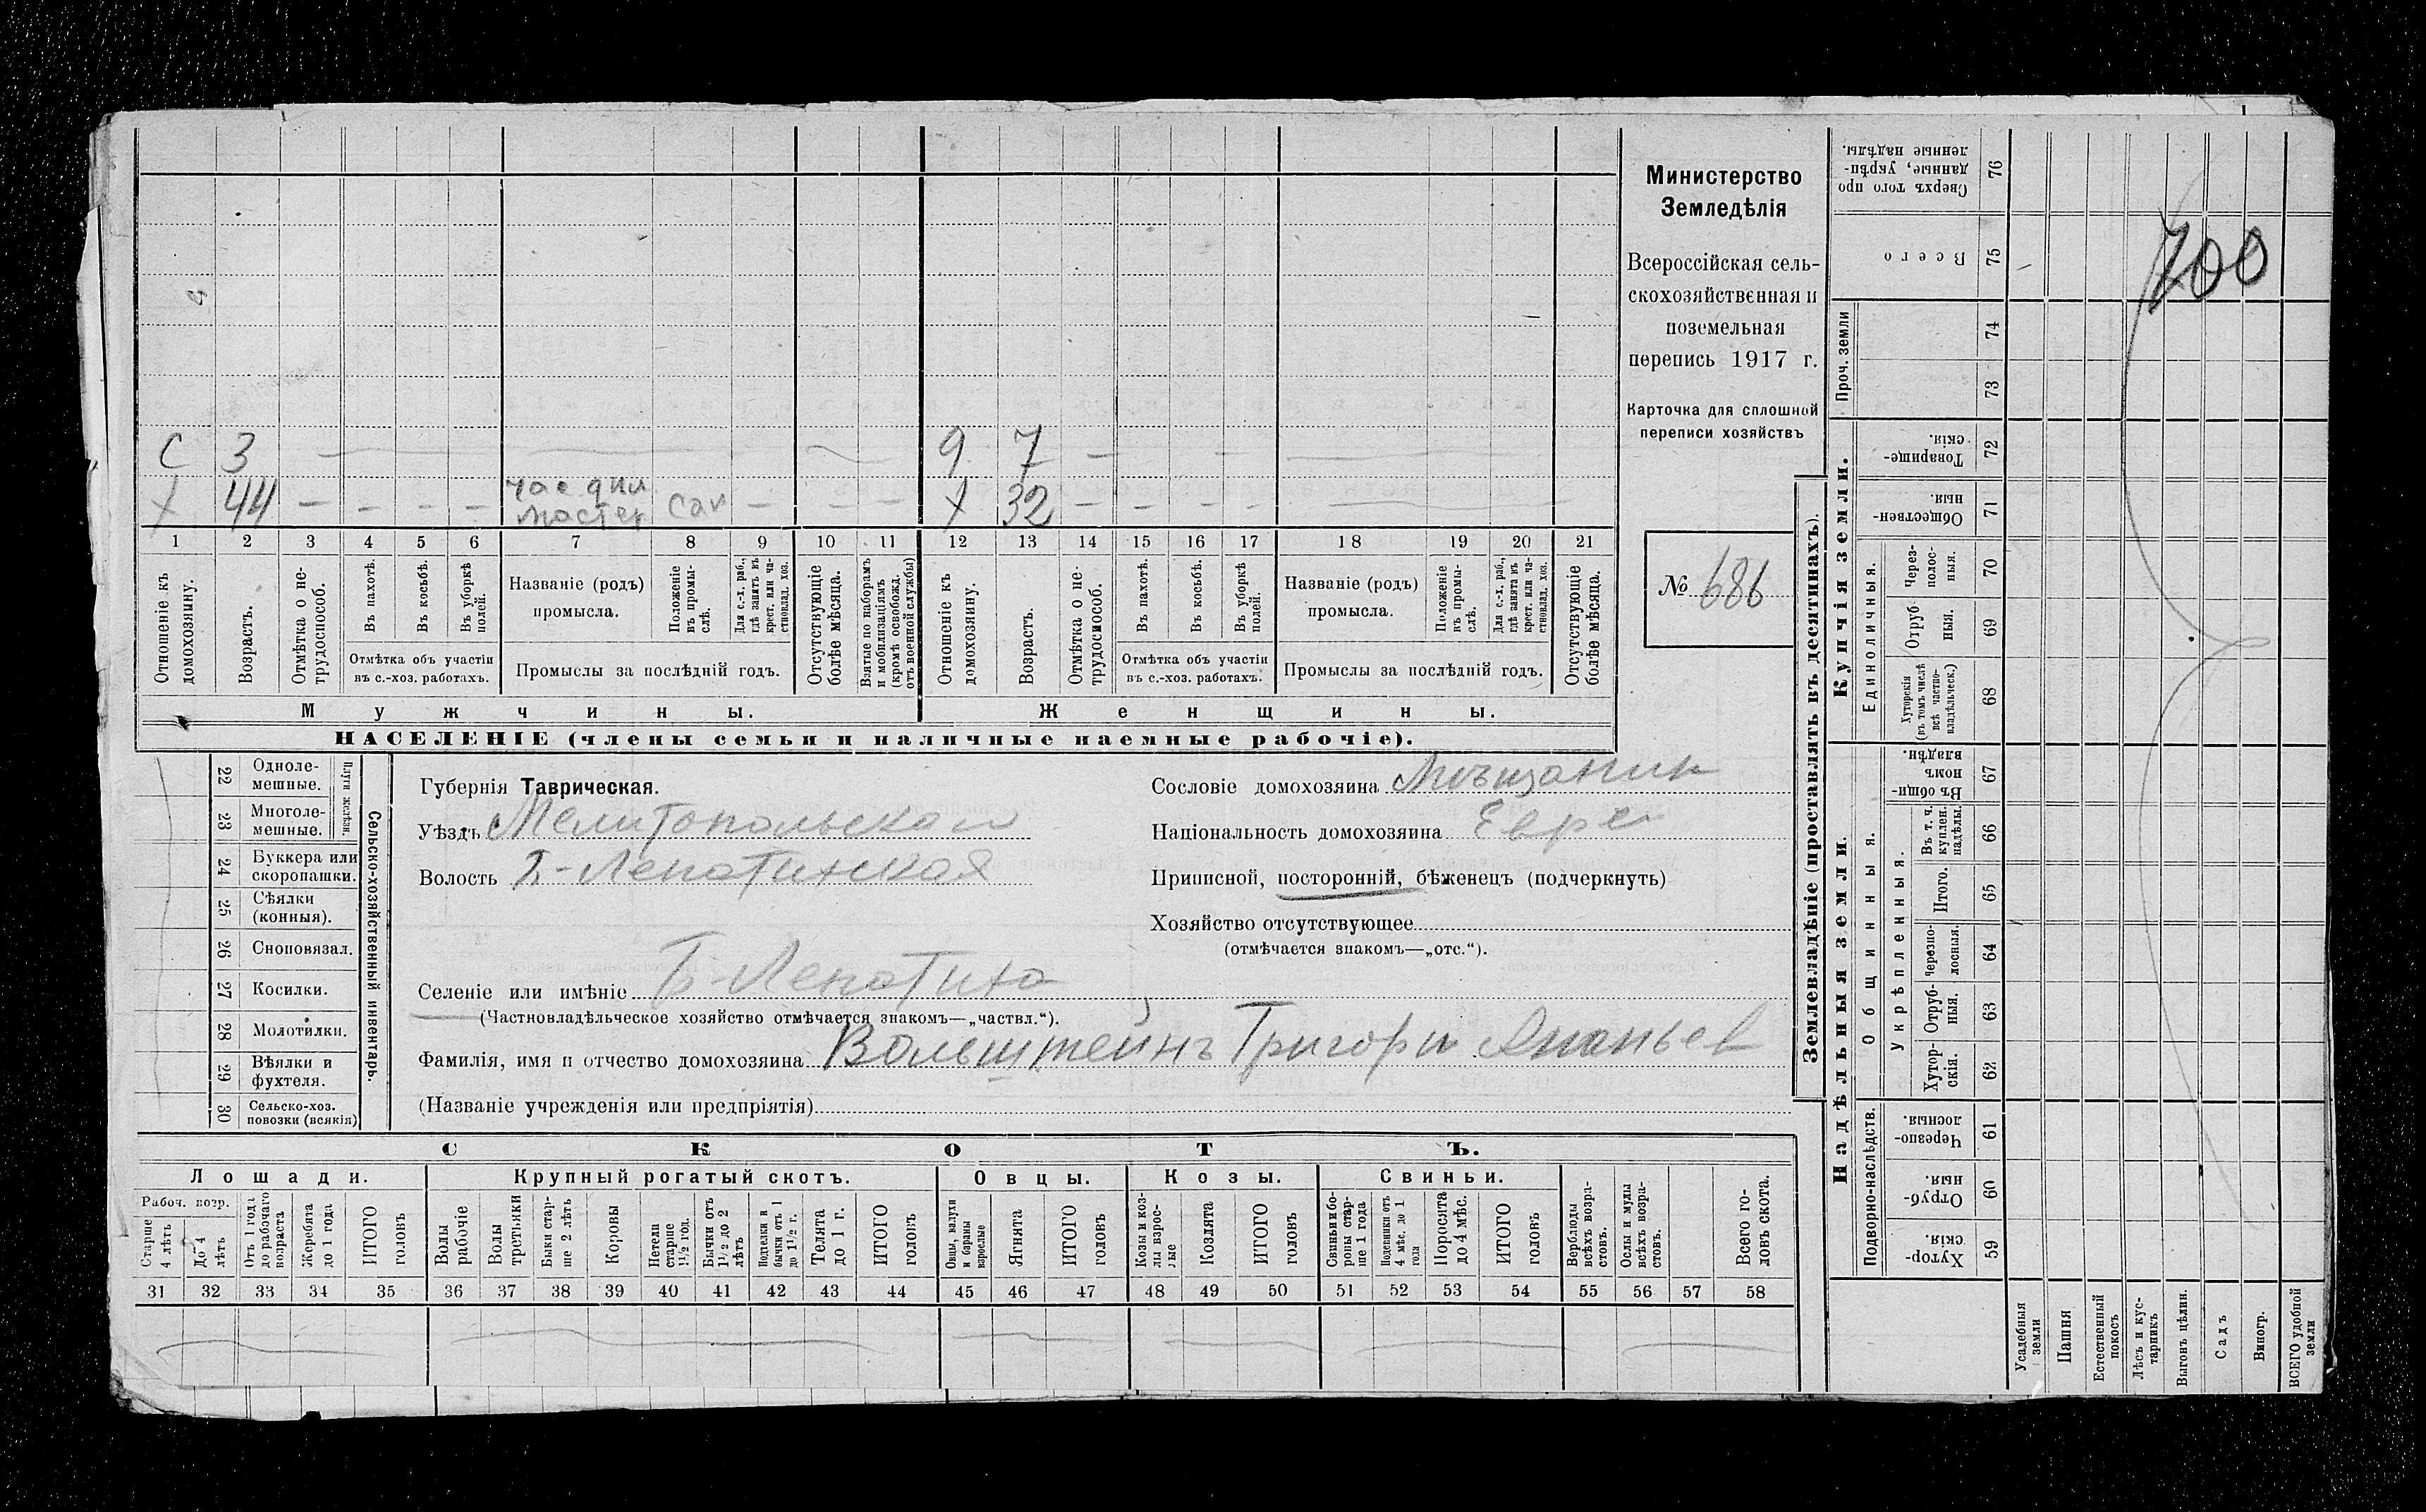 Министерство
Земледѣлія
Всероссійская сель-
скохозяйственная и
поземельная
перепись 1917 г.
Карточка для сплошной
переписи хозяйствъ
№ 686
700
С 3 9 7
х 44 – – – – час дил мастер сам – – – х 32 – – – –
1 2 3 4 5 6 7 8 9 10 11 12 13 14 15 16 17 18 19 20 21
Отношеніе къ домохозяину.
Возрастъ.
Отмѣтка о не-трудоспособ.
Въ пахотѣ.
Въ косьбѣ.
Въ уборкѣ полей.
Отмѣтка объ участіи въ с.-хоз. работахъ.
Названіе (родъ) промысла.
Положеніе въ промы-слѣ.
Для с.-х. раб., гдѣ занятъ въ крест. или ча-стновлад. хоз.
Промыслы за послѣдній годъ.
Отсутствующіе болѣе мѣсяца.
Взятые по наборамъ и мобилизаціямъ (кромѣ освобожд. отъ военной службы)
Отношеніе къ домохозяину.
Возрастъ.
Отмѣтка о не-трудоспособ.
Въ пахотѣ.
Въ косьбѣ.
Въ уборкѣ полей.
Отмѣтка объ участіи въ с.-хоз. работахъ.
Названіе (родъ) промысла.
Положеніе въ промы-слѣ.
Для с.-х. раб., гдѣ занята въ крест. или ча-стновлад. хоз.
Промыслы за послѣдній годъ.
Отсутствующіе болѣе мѣсяца.
Мужчины. Женщины.
НАСЕЛЕНІЕ (члены семьи и наличные наемные рабочіе).
22 Одноле-мешные.
23 Многоле-мешные.
Плуги желѣзн.
24 Буккера или скоропашки.
25 Сѣялки (конныя).
26 Сноповязал.
27 Косилки.
28 Молотилки.
29 Вѣялки и фухтеля.
30 Сельско-хоз. повозки (всякія)
Сельско-хозяйственный инвентарь.
Губернія Таврическая.
Уѣздъ Мелитопольской
Волость Б-Лепатинская
Сословіе домохозяина Мѣщанин
Національность домохозяина Евре
Приписной, посторонній, бѣженецъ (подчеркнуть)
Хозяйство отсутствующее
(отмѣчается знакомъ—„отс.“).
Селеніе или имѣніе Б-Лепатиха
(Частновладѣльческое хозяйство отмѣчается знакомъ—„частвл.“).
Фамилія, имя и отчество домохозяина Вольштейнъ Григори Ананьев
(Названіе учрежденія или предпріятія)
СКОТЪ.
Лошади. Крупный рогатый скотъ. Овцы. Козы. Свиньи.
Рабоч. возр.
Старше 4 лѣтъ
До 4 лѣтъ
Отъ 1 года до рабочаго возраста
Жеребята до 1 года
ИТОГО головъ
Волы рабочіе
Волы третьяки
Быки стар-ше 2 лѣтъ
Коровы
Нетели старше 1½ год.
Бычки отъ 1½ до 2 лѣтъ
Подтелки и бычки отъ 1 до 1½ г.
Телята до 1 г.
ИТОГО головъ
Овцы, валухи и бараны взрослые
Ягнята
ИТОГО головъ
Козы и коз-лы взрос-лые
Козлята
ИТОГО головъ
Свиньи и бо-ровы стар-ше 1 года
Подсвинки отъ 4 мѣс. до 1 года
Поросята до 4 мѣс.
ИТОГО головъ
Верблюды всѣхъ возра-стовъ.
Ослы и мулы всѣхъ возра-стовъ.
Всего го-ловъ скота.
31 32 33 34 35 36 37 38 39 40 41 42 43 44 45 46 47 48 49 50 51 52 53 54 55 56 57 58
Землевладѣніе (проставлять въ десятинахъ).
Купчія земли.
Надѣльныя земли.
Сверхъ того про данные, укрѣп-ленные надѣлы. 76
Всего 75
Проч. земли 74 73
Товарище-скія. 72
Обществен-ныя. 71
Единоличныя.
Через-полос-ныя. 70
Отруб-ныя. 69
Хуторскія (въ томъ числѣ всѣ частно-владѣльческ.) 68
Общинныя.
Въ общи-номъ владѣн. 67
Укрѣпленныя.
Въ т. ч. куплен. надѣлы. 66
Итого. 65
черезпо-лосныя. 64
Отруб-ныя. 63
Хутор-скія. 62
Подворно-наслѣдств.
Черезпо-лосныя. 61
Отруб-ныя. 60
Хутор-скія. 59
Усадебныя земли
Пашня
Естественный покосъ
Лѣсъ и кус-тарникъ
Выгонъ цѣлин.
Садъ
Виногр.
ВСЕГО удобной земли